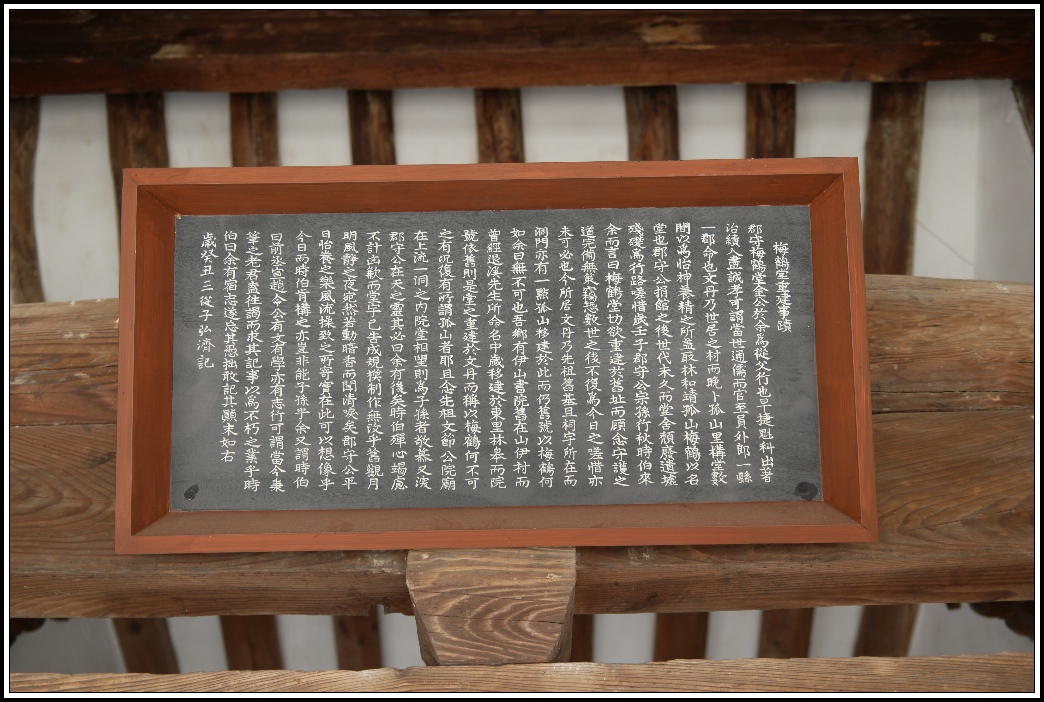 梅鶴堂重建事蹟
郡守梅鶴堂金公於余爲從大行也早捷魁科出著
治績入盡誠孝可謂當世通儒而官至員外郎一縣
一郡命也文丹乃世居之村而晩卜孤山里構堂數
間以爲怡神養精之所盖取林和靖孤山梅鶴以名
堂也郡守公捐館之後世代未久而堂舍頹廢遺墟
殘礎爲行路嗟惜歲壬子郡守公宗孫行秋時伯來
余而言曰梅鶴堂切欲重建於舊址而顧念守護之
道完備無弊竊恐數世之後不復爲今日之嗟惜亦
未可必也今所居文丹乃先祖舊基且祠宇所在而
洞門亦有一點孤山移建於此而仍舊號以梅鶴何
如余曰無不可也吾鄕有伊山書院舊在山伊村而
曾經退溪先生所命名中歲移建於東里林皐而院
號依舊則是堂之重建於文丹而稱以梅鶴何不可
之有況復有所謂孤山者耶且念先祖文節公院廟
在上流一洞之內院堂相望則爲子孫者敬慕又深
郡守公在天之靈其必曰余有後矣時伯殫心竭慮
不計凶歉而堂宇已告成規模制作無改乎舊觀月
明風靜之夜宛然若動暗香而聞淸唳矣郡守公平
日怡養之樂風流操致之所寄寓在此可以想像乎
今日而時伯肯構之亦豈非能子孫乎余又謂時伯
曰前丞宣趙令公有文有學亦有志行可謂當今秉
筆之君君盍往謁而求其記事以爲不朽之業乎時
伯曰余有宿志遂忘其愚拙敢記其顚末如右
歲癸丑三從子弘濟記